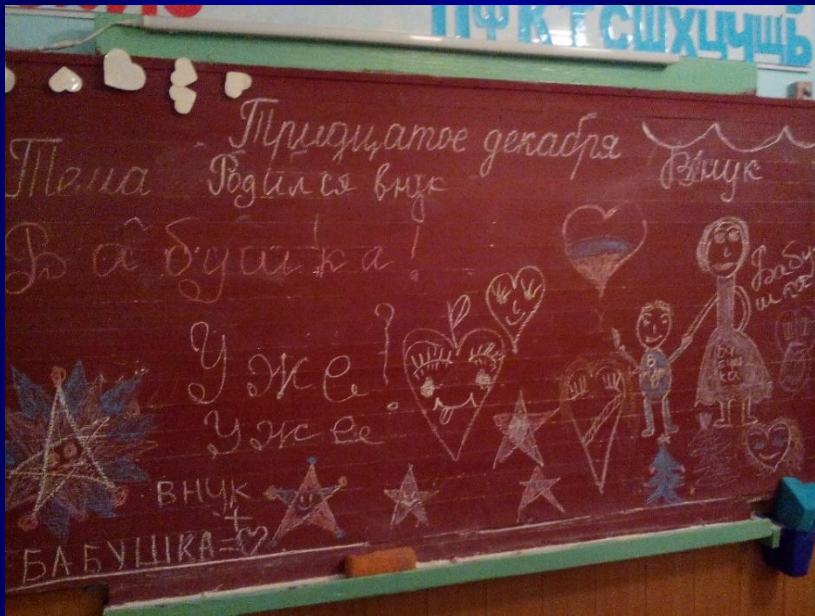 ПФКТСШХЦЧЩЬ
Тридцатое декабря
Тема Родился внук
Внук
Бабушка!
Бабушка
Уже?
уже
ВНУК
+
БАБУШКА=